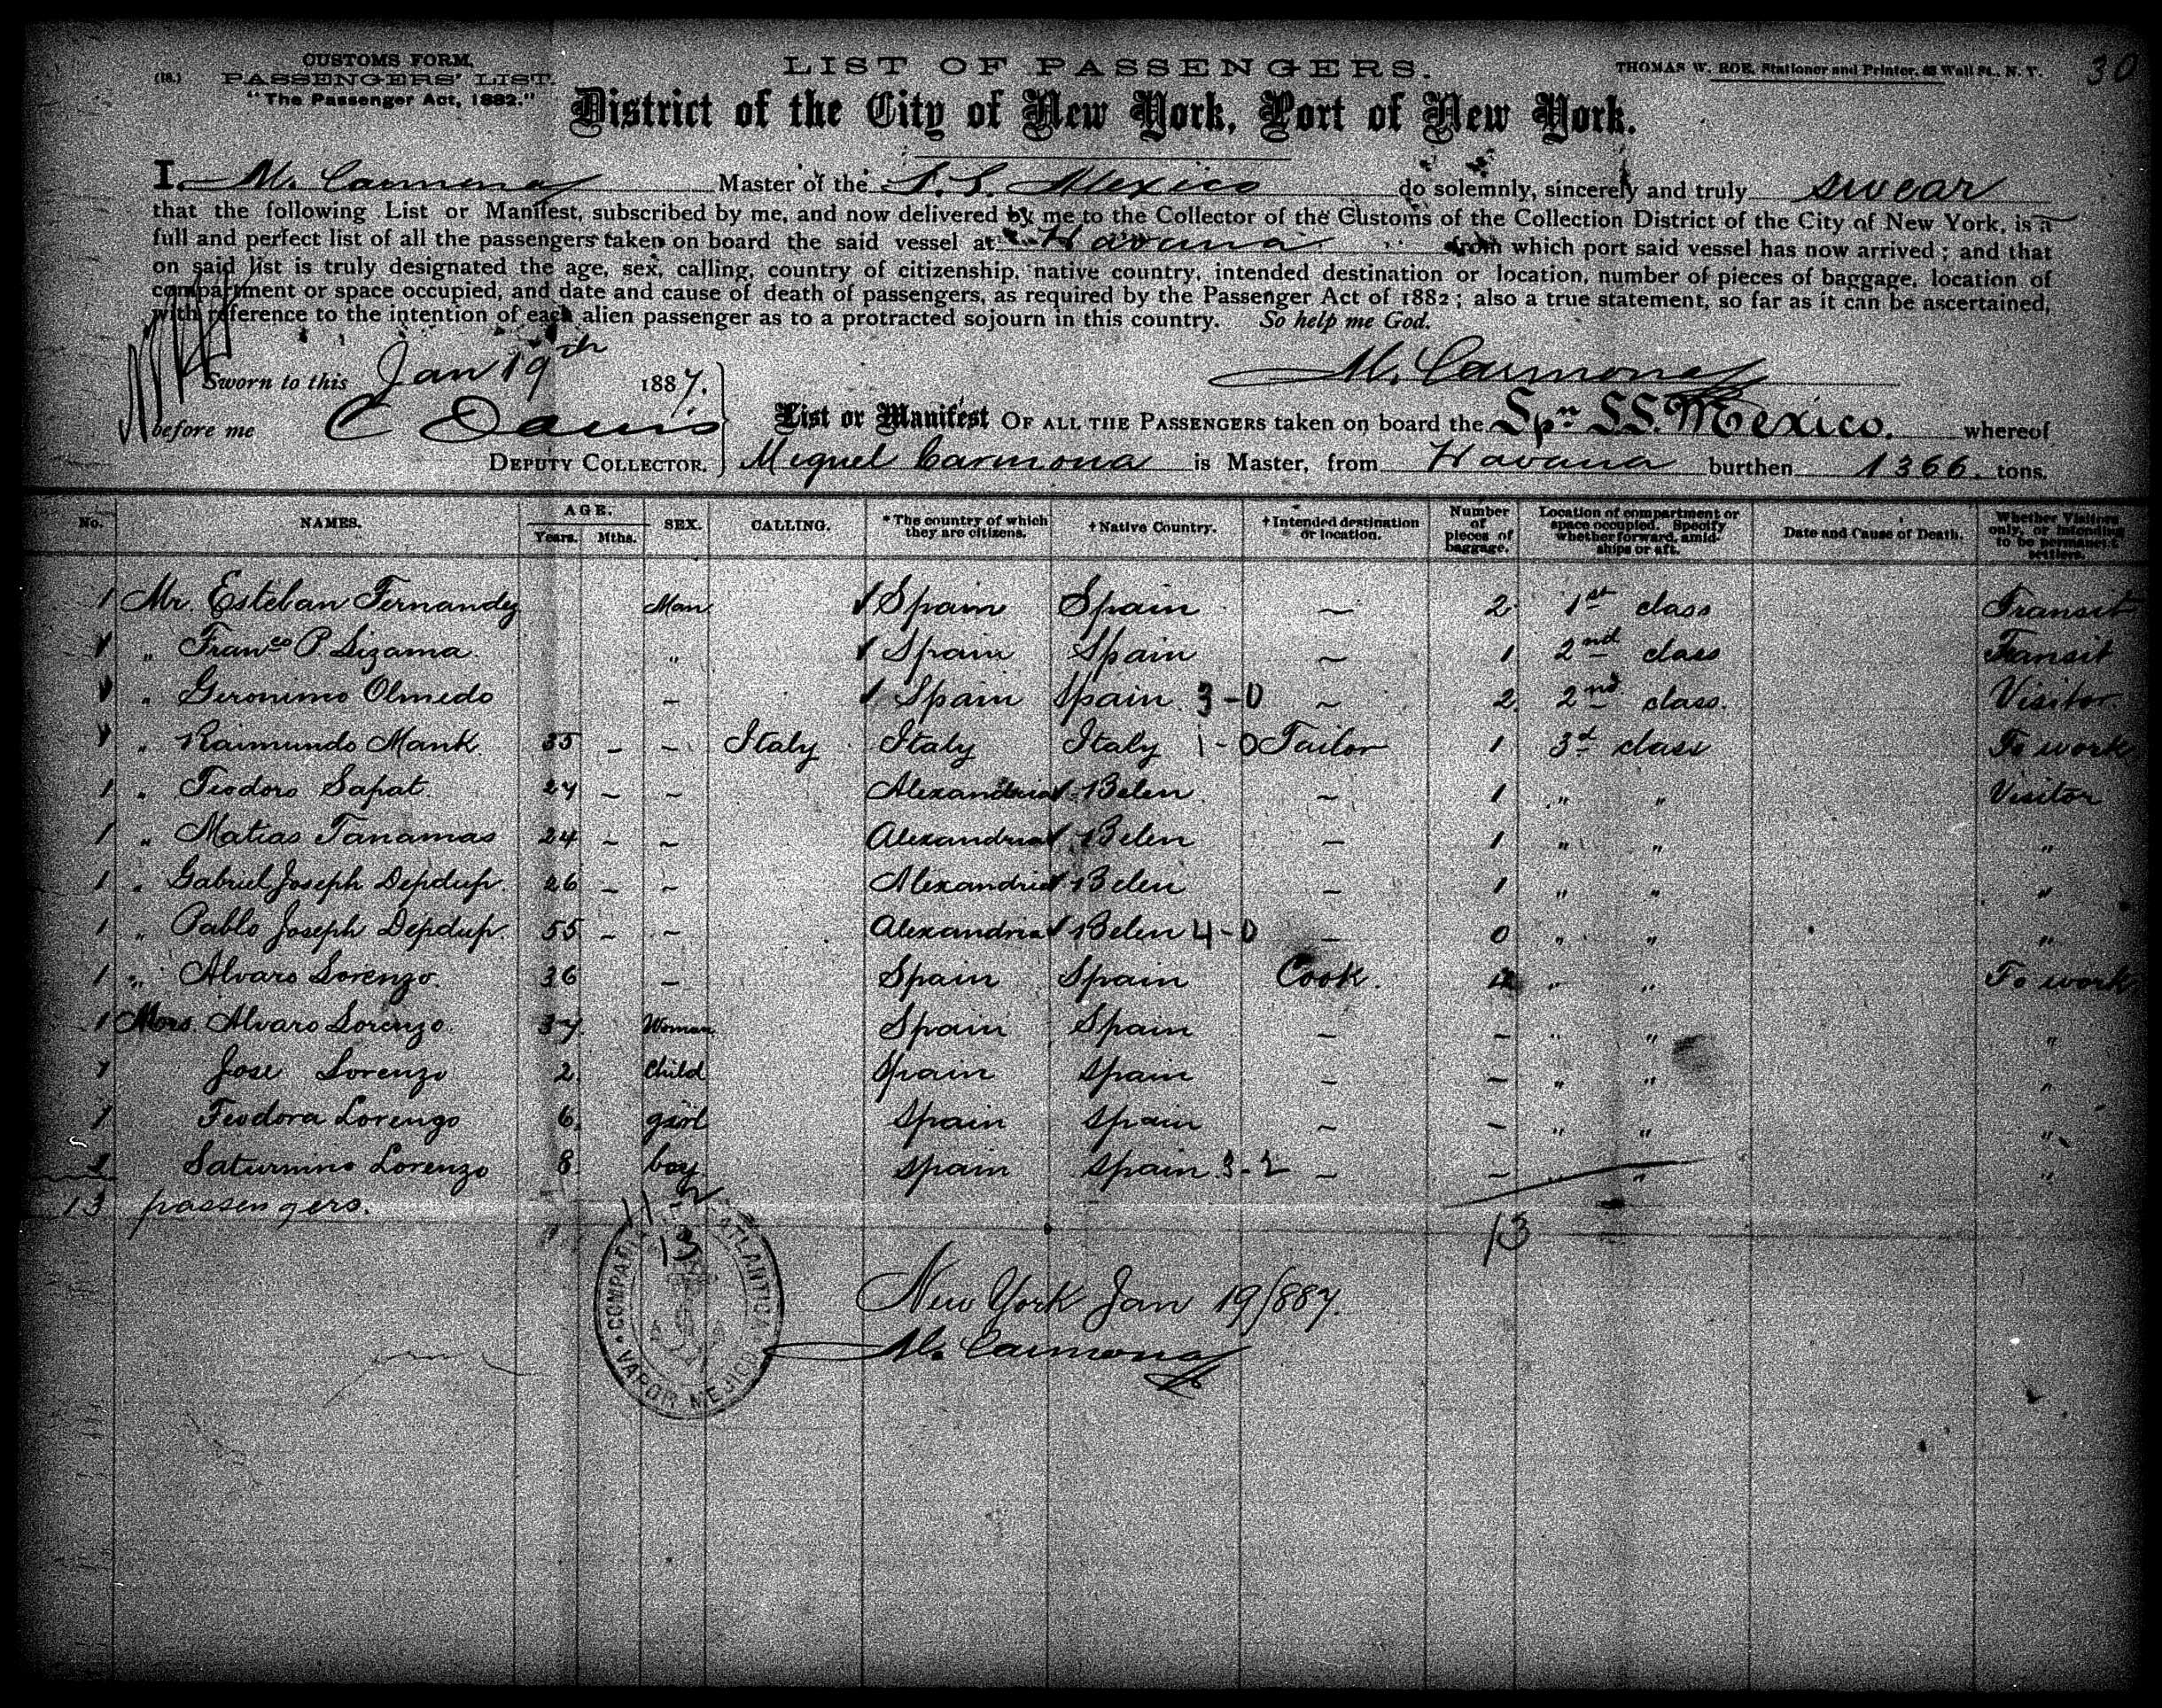 CUSTOMS FORM,
(18.) PASSENGERS' LIST.
"The Passenger Act, 1882."
LIST OF PASSENGERS.
THOMAS W. ROE, Stationer and Printer, Wall St., N. Y.
30
District of the City of New York, Port of New York.
I, M. Carmona Master of the S. S. Mexico do solemnly, sincerely and truly swear
that the following List or Manifest, subscribed by me, and now delivered by me to the Collector of the Customs of the Collection District of the City of New York, is a
full and perfect list of all the passengers taken on board the said vessel at Havana from which port said vessel has now arrived; and that
on said list is truly designated the age, sex, calling, country of citizenship, native country, intended destination or location, number of pieces of baggage, location of
compartment or space occupied, and date and cause of death of passengers, as required by the Passenger Act of 1882; also a true statement, so far as it can be ascertained,
with reference to the intention of each alien passenger as to a protracted sojourn in this country. So help me God.
Sworn to this Jan 19th 1887. M. Carmona
before me C Davis
List or Manifest OF ALL THE PASSENGERS taken on board the Spn SS. Mexico. whereof
DEPUTY COLLECTOR. Miguel Carmona is Master, from Havana burthen 1366. tons.
No. NAMES. AGE. Years. Mths. SEX. CALLING. *The country of which they are citizens. †Native Country. †Intended destination or location. Number of pieces of baggage. Location of compartment or space occupied. Specify whether forward, amidships or aft. Date and Cause of Death. Whether Visitors only, or intending to be permanent settlers.
1 Mr. Esteban Fernandez Man Spain Spain ~ 2 1st class Transit
1 " Franco P Lizama " Spain Spain ~ 1 2nd class Transit
1 " Geronimo Olmedo - Spain Spain 3-0 ~ 2 2nd class. Visitor
1 " Raimundo Mank 35 - - Italy Italy Italy 1-0 Tailor 1 3d class To work
1 " Teodoro Sapat. 27 - - Alexandria Belen ~ 1 " " Visitor
1 " Matias Tanamas 24 - - Alexandria Belen - 1 " " "
1 " Gabriel Joseph Depdup. 26 - - Alexandria Belen - 1 " " "
1 " Pablo Joseph Depdup. 55 - - Alexandria Belen 4-0 - 0 " " "
1 " Alvaro Lorenzo. 36 - Spain Spain Cook. " " To work
1 Mrs. Alvaro Lorenzo. 37 Woman Spain Spain - - " " "
1 Jose Lorenzo 2 Child Spain Spain - - " " "
1 Teodora Lorenzo 6 girl Spain Spain ~ - " " "
1 Saturnino Lorenzo 8 boy Spain Spain 3-2 - - " "
13 passengers.
11-2
13
13
COMPAÑIA TRASATLANTICA
VAPOR MEJICO
New York Jan 19/887.
M. Carmona